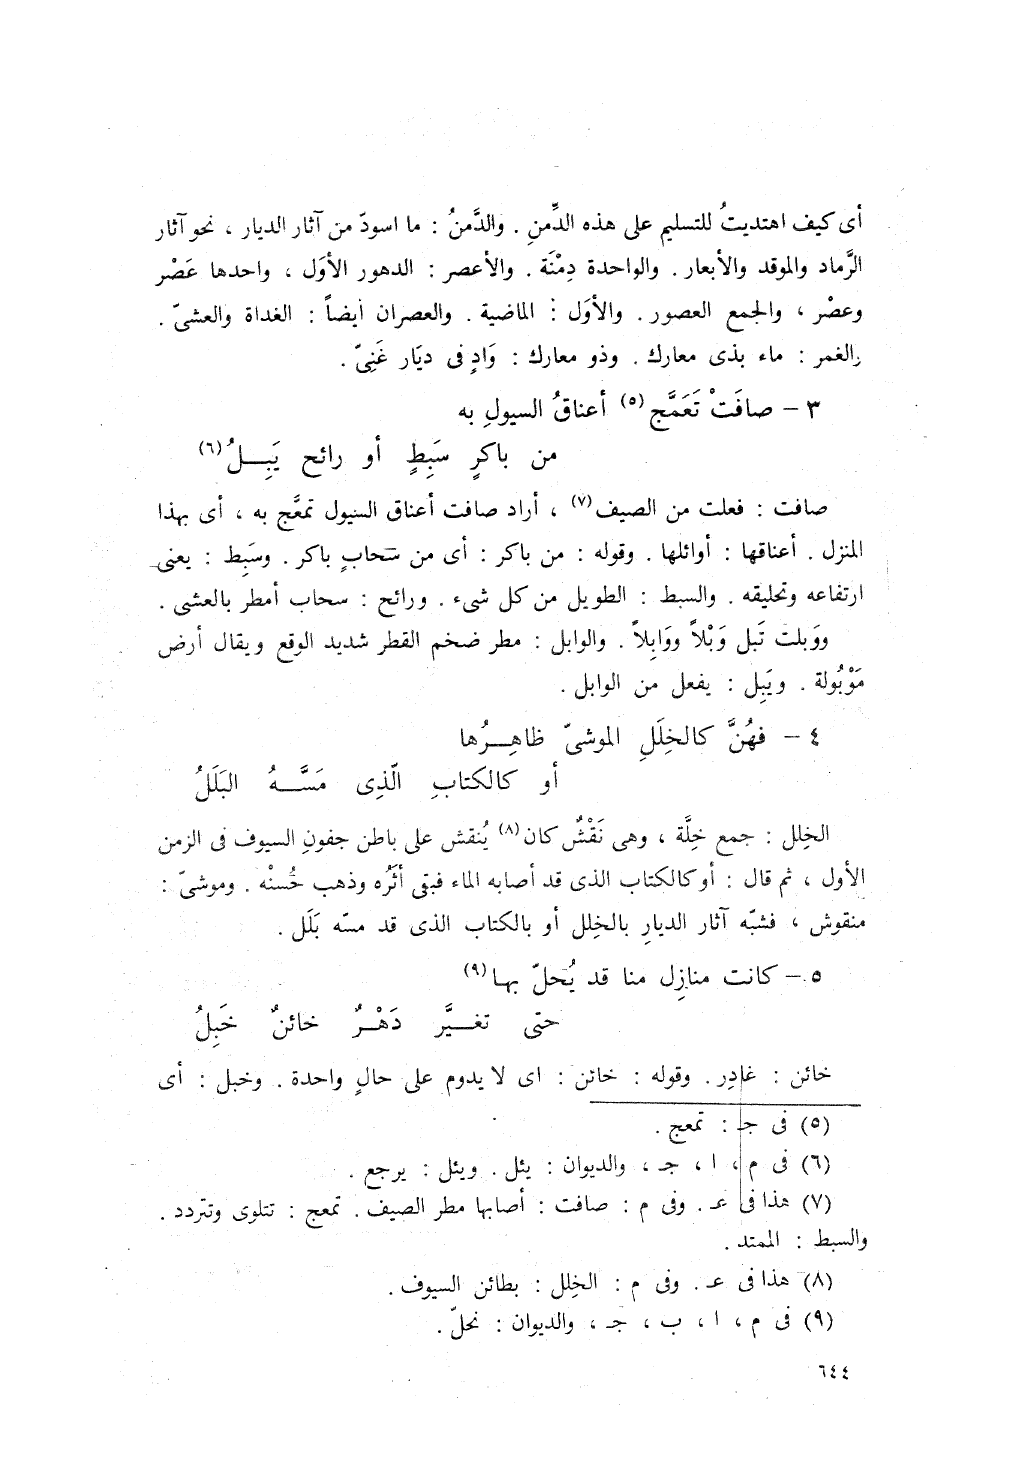 أى كيف اهتديتُ للتسليم على هذه الدِّمنِ . والدَّمنُ : ما اسودّ من آثار الديار ، نحو آثار
الرَّماد والموقد والأبعار . والواحدة دِمْنَة . والأعصر : الدهور الأوَل ، واحدها عَصْر
وعصْر ، والجمع العصور . والأوَل : الماضية . والعصران أيضاً : الغداة والعشىّ .
والغمر : ماء بذى معارك . وذو معارك : وَادٍ فى ديَار غَنِىّ .
٣ – صافَتْ تَعَمَّج (٥) أعناقُ السيولِ به
من باكرٍ سَبِطٍ أو رائح يَبِــلُ (٦)
صافت : فعلت من الصيف (٧) ، أراد صافت أعناق السيول تمعَّج به ، أى بهذا
المنزل . أعناقها : أوائلها . وقوله : من باكر : أى من سَحابٍ باكر . وسَبِط : يعنى
ارتفاعه وتحليقه . والسبط : الطويل من كل شىء . ورائح : سحاب أمطر بالعشى .
ووَبلت تَبل وَبْلاً ووَابِلاً . والوابل : مطر ضخم القطر شديد الوقع ويقال أرض
مَوْبُولة . ويَبِل : يفعل من الوابل .
٤ – فهُنَّ كالخِلَلِ الموشىّ ظاهِــرُها
أو كالكتابِ الّذِى مَسَّــهُ البَلَلُ
الخِلل : جمع خِلَّة ، وهى نَقْشٌ كان (٨) يُنقش على باطن جفونِ السيوف فى الزمن
الأول ، ثم قال : أو كالكتاب الذى قد أصابه الماء فبقى أثَرُه وذهب حُسنْه . وموشىّ :
منقوش ، فشبّه آثار الديارِ بالخِلل أو بالكتاب الذى قد مسّه بَلَل .
٥ – كانت منازِل منا قد يُحلّ بها (٩)
حتى تغــيَّر دَهْــرٌ خائنٌ خَبِلُ
خائن : غادِر . وقوله : خائن : اى لا يدوم على حالٍ واحدة . وخبل : أى
(٥) فى جـ : تمعج .
(٦) فى م ، ا ، جـ ، والديوان : يئل . ويئل : يرجع .
(٧) هذا فى عـ . وفى م : صافت : أصابها مطر الصيف . تمعج : تتلوى وتتردد .
والسبط : الممتد .
(٨) هذا فى عـ . وفى م : الخِلل : بطائن السيوف .
(٩) فى م ، ا ، ب ، جـ ، والديوان : نحلّ .
٦٤٤